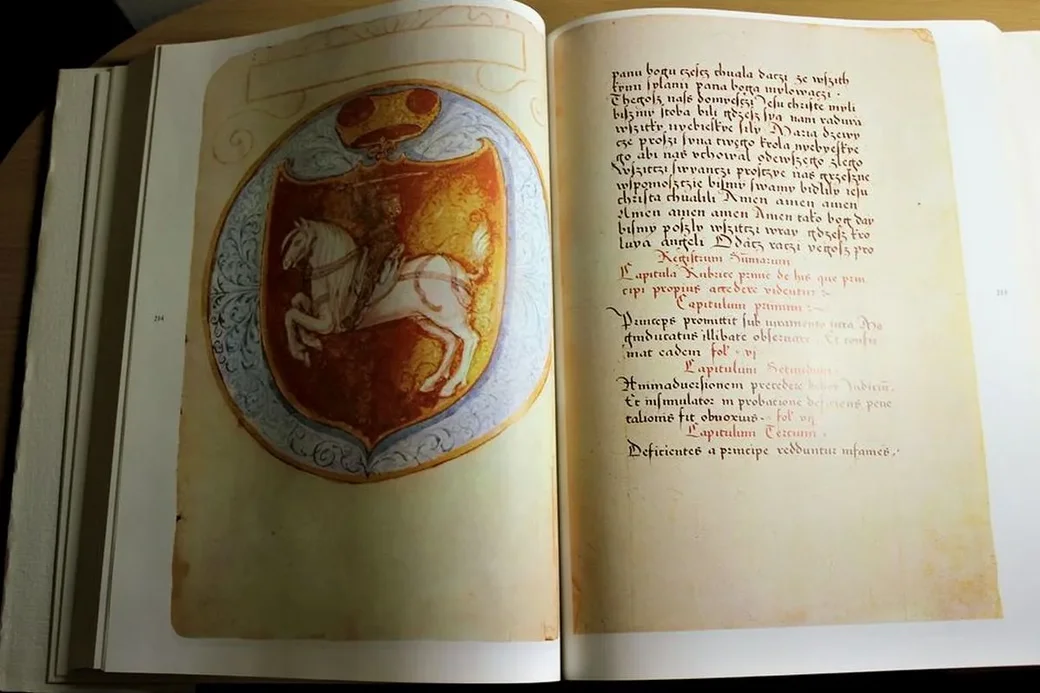 214
panu bogu czescz chuala daczi ze wszith
kymi sylami pana boga mylowaczi ·
Thegosz nas domyesczi Jesu christe myli
biszmy stoba bili gdzesz sya nam raduia
wszitky nyebieskye sily Maria dzewy
cze proszi syna twego krola nyebyeskye
go abi nas vchowal odewszego zlego
Wszitczi swyanczi prosczye nas grzeszne
wspomosczcie bismy swamy bidlily iesu
christa chualili Amen amen amen
Amen amen amen Amen tako bog day
bismy poszly wszitczi wray gdzesz kro
luya angeli Odacz raczi vegosz pro
Registrum Sumarium
Capitula Rubrice prime de his que prin
cipi propius accedere videntur
Capitulum primum
Princeps promittit sub iuramento
observare
mat eadem fol · vj
Capitulum Secundum
Animadversionem precedere debet Judicium.
Et insimulator in probatione deficiens pene
talionis fit obnoxius · fol vij
Capitulum Tercium
Deficientes a principe redduntur infames ·
215